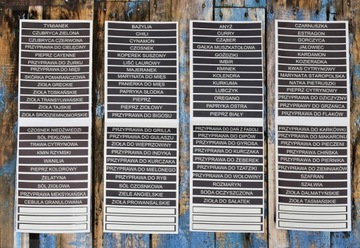 TYMIANEK
CZUBRYCA ZIELONA
CZUBRYCA CZERWONA
PRZYPRAWA DO GRILLA
PIEPRZ CAYENNE
PRZYPRAWA DO ŻURKU
PRZYPRAWA DO MIĘS
SKÓRKA POMARAŃCZOWA
ZIOŁA GRECKIE
ZIOŁA TOSKAŃSKIE
ZIOŁA TRANSYLWAŃSKIE
ZIOŁA TAJSKIE
ZIOŁA ŚRÓDZIEMNOMORSKIE
CZOSNEK NIEDŹWIEDZI
SÓL PEKLOWA
TRAWA CYTRYNOWA
KMIN RZYMSKI
WANILIA
PIEPRZ KOLOROWY
ŻELATYNA
SÓL ZIOŁOWA
PRZYPRAWA MEKSYKAŃSKA
CEBULA GRANULOWANA
BAZYLIA
CHILI
CYNAMON
CZOSNEK
KOPEREK SUSZONY
LIŚĆ LAUROWY
MAJERANEK
MARYNATA DO MIĘS
PANIERKA DO MIĘS
PAPRYKA SŁODKA
PIEPRZ
PIEPRZ ZIOŁOWY
PRZYPRAWA DO BIGOSU
PRZYPRAWA DO GRILLA
PRZYPRAWA DO GULASZU
ZIOŁA DO WIEPRZOWINY
PRZYPRAWA DO INDYKA
PRZYPRAWA DO KURCZAKA
PRZYPRAWA DO MIELONEGO
PRZYPRAWA DO RYB
SÓL CZOSNKOWA
ZIELE ANGIELSKIE
ZIOŁA PROWANSALSKIE
ANYŻ
CURRY
CZĄBER
GAŁKA MUSZKATOŁOWA
GOŹDZIKI
IMBIR
KMINEK
KOLENDRA
KURKUMA
LUBCZYK
OREGANO
PAPRYKA OSTRA
PIEPRZ BIAŁY
PRZYPRAWA DO DAŃ Z FASOLI
PRZYPRAWA DO GYROSA
PRZYPRAWA DO KURCZAKA
PRZYPRAWA DO ŻEBEREK
PRZYPRAWA DO TZATZIKI
PRZYPRAWA DO WOŁOWINY
ROZMARYN
SODA OCZYSZCZONA
ZIOŁA DO SAŁATEK
CZARNUSZKA
ESTRAGON
GORCZYCA
JAŁOWIEC
KARDAMON
KOZIERADKA
KWAS CYTRYNOWY
MARYNATA STAROPOLSKA
NATKA PIETRUSZKI
PIEPRZ CYTRYNOWY
PRZYPRAWA DO GĘSI
PRZYPRAWA DO FLAKÓW
PRZYPRAWA DO KARKÓWKI
PRZYPRAWA DO PIEROGÓW
PRZYPRAWA CHIŃSKA
PRZYPRAWA DO PIZZY
PRZYPRAWA DO PIERNIKA
PRZYPRAWA DO ZIEMNIAKÓW
SZAFRAN
SZAŁWIA
ZIOŁA DALMATYŃSKIE
ZIOŁA TASMAŃSKIE